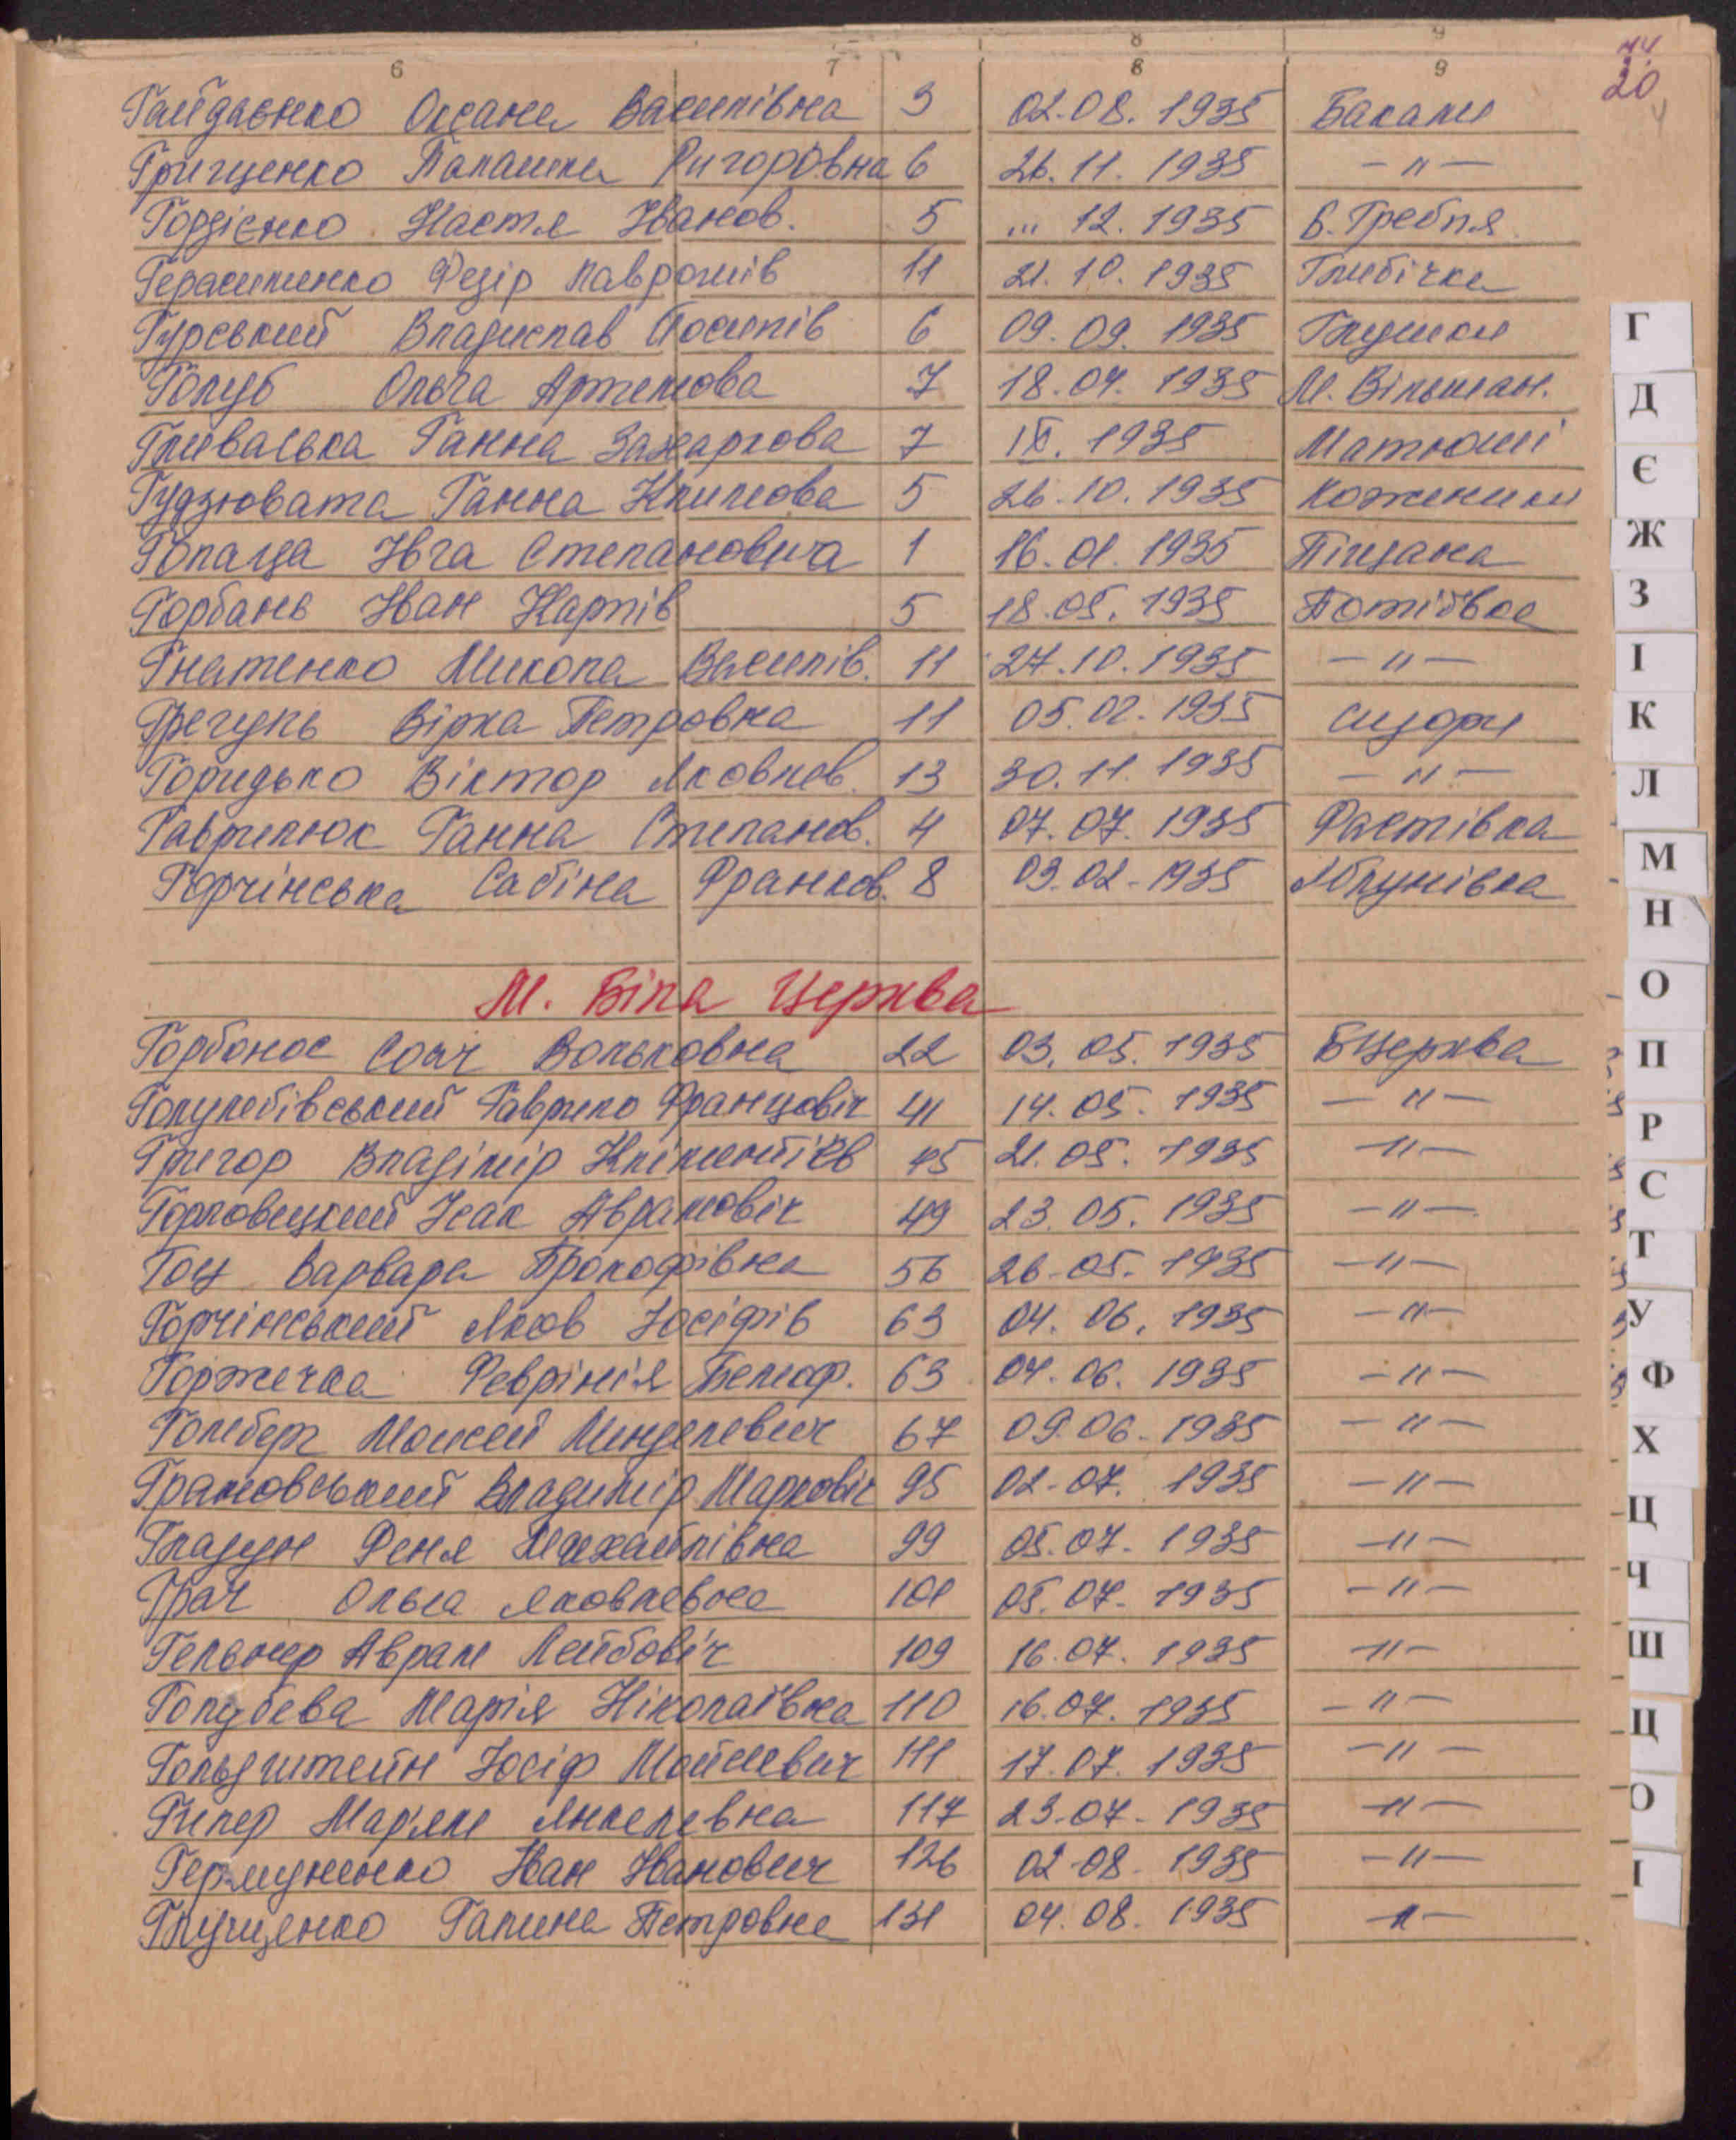 8 9
6 7 8 9 20
Гайдаєнко Оксана Василівна 3 02.08.1935 Бакали
Грищенко Палашка Ригоровна 6 26.11.1935 — " —
Гордієнко Настя Іванов. 5 ... 12.1935 Б. Гребля
Герасименко Федір Лавронів 11 21.10.1935 Глибічка
Гурський Владислав Йосипів 6 09.09.1935 Глушки
Голуб Ольга Артемова 7 18.04.1935 М. Вільшан.
Гливаська Ганна Захарова 7 IX. 1935 Матюші
Гудзювата Ганна Климова 5 26.10.1935 Коженики
Гопаца Івга Степановна 1 16.01.1935 Піщана
Горбань Іван Карпів 5 18.05.1935 Потіївка
Гнатенко Микола Василів. 11 27.10.1935 — " —
Гречуль Вірка Петровна 11 05.02.1935 Сидори
Горидько Віктор Яковлев. 13 30.11.1935 — " —
Гаврилюк Ганна Степанов. 4 07.07.1935 Фастівка
Горчінська Сабіна Франков. 8 03.02.1935 Яблунівка
М. Біла Церква
Горбонос Вольковна 22 03.05.1935 БЦерква
Голумбівський Гаврило Францовіч 41 14.05.1935 — " —
Григор Владімір Кліментіїв 45 21.05.1935 — " —
Горловецкий Ісак Аврамовіч 49 23.05.1935 — " —
Гоц Варвара Прокофівна 56 26.05.1935 — " —
Горчінський Яков Юсіфів 63 04.06.1935 — " —
Горжечка Феврінія 63 04.06.1935 — " —
Гомберг Моисей Минделевич 67 09.06.1935 — " —
Грамовський Владимір Марковіч 95 02.07.1935 — " —
Гладун Феня Михайлівна 99 05.07.1935 — " —
Грач Ольга Яковлевна 101 05.07.1935 — " —
Гельнер Аврам Лейбовіч 109 16.07.1935 — " —
Голубева Марія Ніколаївна 110 16.07.1935 — " —
Гольдштейн Юсіф Мойсеевич 111 17.07.1935 — " —
Гилер Марʼям Янкелевна 117 23.07.1935 — " —
Іван Іванович 126 02.08.1935 — " —
Глущенко Галина Петровна 131 04.08.1935 — " —
Г
Д
Є
Ж
З
І
К
Л
М
Н
О
П
Р
С
Т
У
Ф
Х
Ц
Ч
Ш